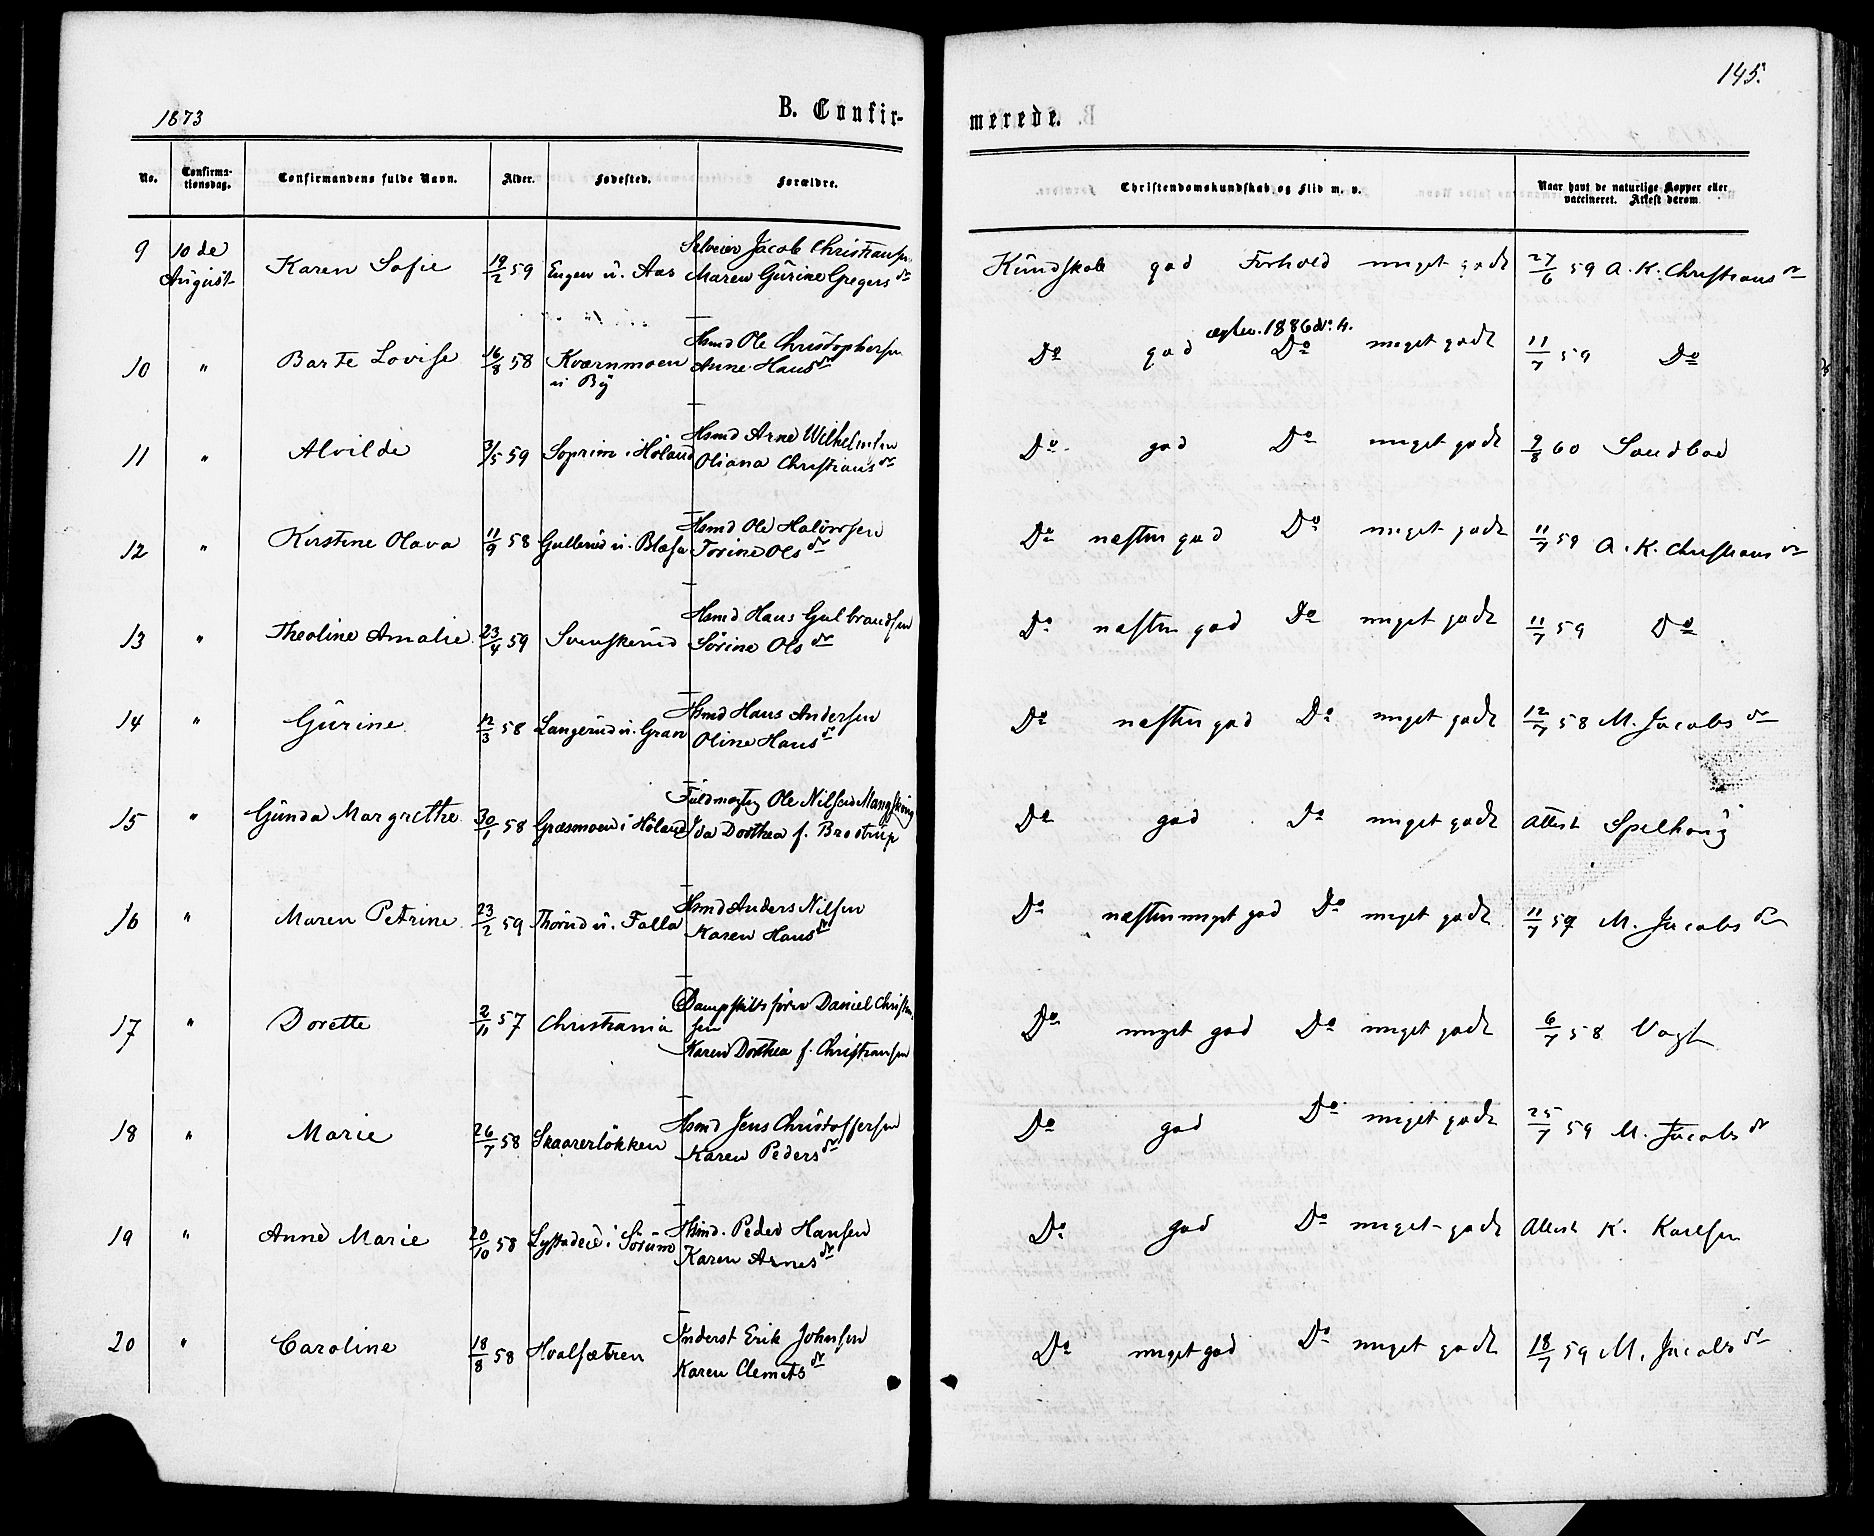 145.
1873
B. Confir-
merede.
No. Confirmationsdag. Confirmandens fulde Navn. Alder. Fødested. Forældre. Christendomskundskab og Flid m. v. Naar havt de naturlige Kopper eller vaccineret. Attest derom
9 10de August Karen Sofie 19/2 59 Engen u. Aas Selveier Jacob Christiansen
Maren Gurine Gregers dr Kundskab god Forhold meget godt 27/6 59 A. K. Christians dr
10 " Barte Lovise 16/8 58 Kværnmoen u By Hsmd Ole Christophersen
Anne Hans dr Do god Do meget godt 11/7 59 Do
1886
11 " Alvilde 3/5 59 Soprim i Høland Hsmd Arne Wilhelmsen
Oliana Christians dr Do god Do meget godt 9/8 60 Sandboe
12 " Kirstine Olava 11/9 58 Gullerud u. Hsmd Ole Halvorsen
Torine Ols dr Do næsten god Do meget godt 11/7 59 A. K. Christians dr
13 " Theoline Amalie 23/4 59 Svenskerud Hsmd Hans Gulbrandsen
Sørine Ols dr Do næsten god Do meget godt 11/7 59 Do
14 " Gurine 12/3 58 Langerud u. Gran Hsmd Hans Andersen
Oline Hans dr Do næsten god Do meget godt 12/7 58 M. Jacobs dr
15 " Gunda Margrethe 30/1 58 Græsmoen i Høland Fuldmægtig Ole Nilsen Mangskoug
Ida Dorthea f. Brostrup Do god Do meget godt Attest Spelhoug
16 " Maren Petrine 23/2 59 Thorud u. Falla Hsmd Anders Nilsen
Karen Hans dr Do næsten meget god Do meget godt 11/7 59 M. Jacobs dr
17 " Dorette 2/11 57 Christiania Dampskibsfører Daniel Christensen
Karen Dorthea f. Christiansen Do meget god Do meget godt 6/7 58 Vogt
18 " Marie 26/7 58 Skaarerløkken Hsmd Jens Christoffersen
Karen Peders dr Do god Do meget godt 25/7 59 M. Jacobs dr
19 " Anne Marie 20/10 58 i Sørum Hsmd. Peder Hansen
Karen Arnes dr Do god Do meget godt Attest K. Karlsen
20 " Caroline 18/8 58 Hvalsætren Inderst Erik Johnsen
Karen Clemets dr Do meget god Do meget godt 18/7 59 M. Jacobs dr